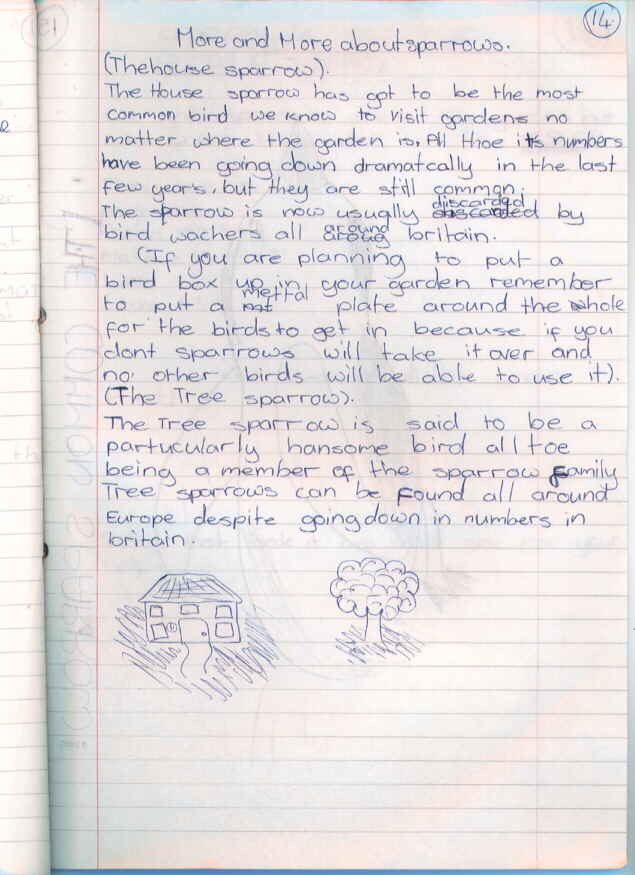 14.
More and More about sparrows.
(The house sparrow).
The House sparrow has got to be the most
common bird we know to visit gardens no
matter where the garden is, All thoe its numbers
have been going down dramatcally in the last
few year's, but they are still common.
The sparrow is now usually discarded by
bird wachers all around britain.
(If you are planning to put a
bird box up in your garden remember
to put a mettal plate around the whole
for the birds to get in because if you
dont sparrows will take it over and
no other birds will be able to use it).
(The Tree sparrow).
The Tree sparrow is said to be a
partucularly hansome bird all toe
being a member of the sparrow Family
Tree sparrows can be found all around
Europe despite going down in numbers in
britain.